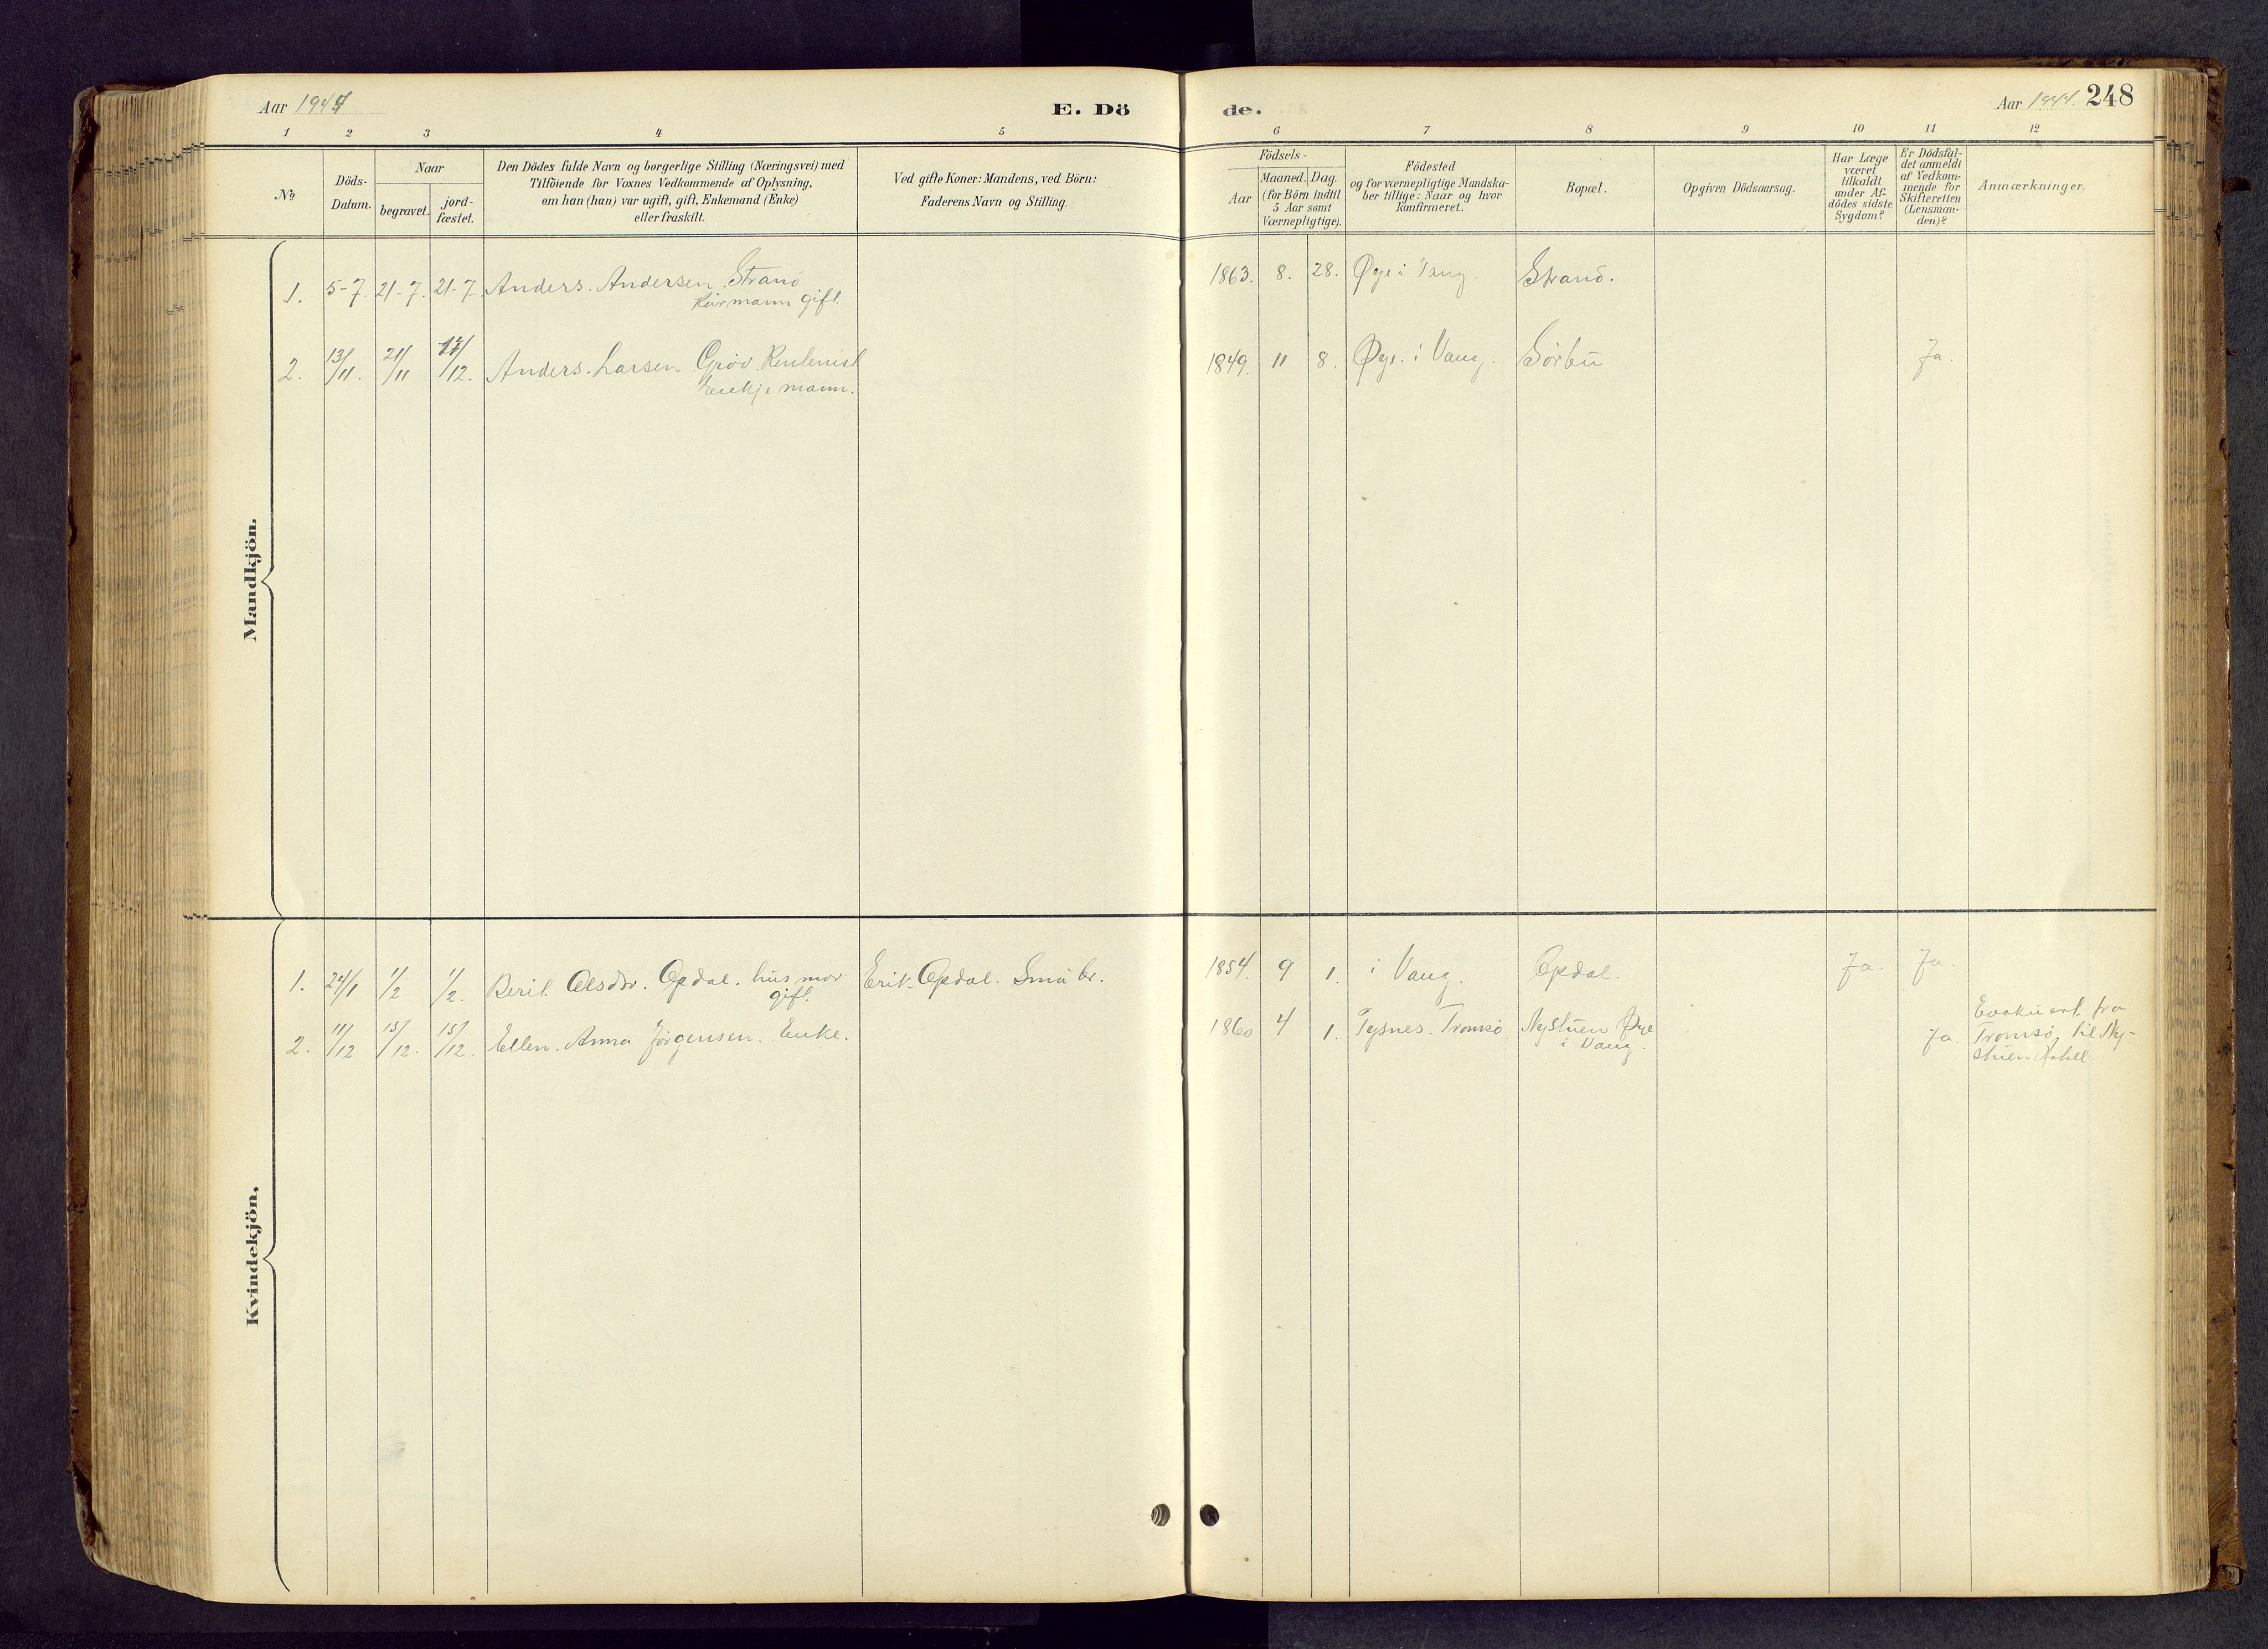 Aar 1944
E. Dö
de.
Aar 1944. 248
1 2 3 4 5 6 7 8 9 10 11 12
No
Döds-
Datum.
Naar
begravet.
jord-
fæstet.
Den Dödes fulde Navn og borgerlige Stilling (Næringsvei) med
Tilföiende for Voxnes Vedkommende af Oplysning,
om han (hun) var ugift, gift, Enkemand (Enke)
eller fraskilt.
Ved gifte Koner: Mandens, ved Börn:
Faderens Navn og Stilling.
Födsels-
Aar
Maaned. Dag.
(for Börn indtil
5 Aar samt
Værnepligtige).
Födested
og for værnepligtige Mandska-
ber tillige: Naar og hvor
konfirmeret.
Bopæl.
Opgiven Dödsaarsag.
Har Læge
været
tilkaldt
under Af-
dödes sidste
Sygdom?
Er Dödsfal-
det anmeldt
af Vedkom-
mende for
Skifteretten
(Lensman-
den)?
Anmærkninger.
Mandkjön.
1. 5-7 21-7. 21-7 Anders. Andersen Strand 1863. 8. 28. Øye i Vang. Strand.
Kårmann gift.
2. 13/11. 21/11 17/12. Anders. Larsen. Gröv. Rentenist 1849. 11 8. Øye. i Vang. Sörbu Ja.
Enkjemann.
Kvindekjön.
1. 24/1 1/2 1/2. Berit. Olsdtr. Opdal. husmor Erik. Opdal. Småbr. 1854. 9 1. i Vang. Opdal. Ja. Ja.
gift.
2. 11/12 15/12. 15/12. Ellen. Anna Jörgensen. Enke. 1860 4 1. Tysnes. Tromsö Nystuen Øye Ja. Evakuert fra
i Vang. Tromsö, til Ny-
stuen Hotell.